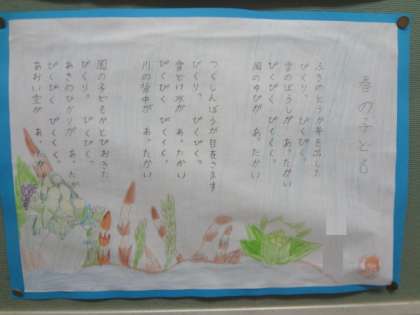 春の子ども
ふきのとうが芽を出した
ぴくり。ぴくぴく。
雪のぼうしが　あったかい
ぴくぴく　ぴくぴく。
風のゆびが　あったかい
つくしんぼうが目をさます
ぴくり。ぴくぴく。
雪どけ水が　あったかい
ぴくぴく　ぴくぴく。
川の背中が　あったかい
園の子どもがとびおきた
ぴくり。ぴくぴく。
あさのひかりが　あったかい
ぴくぴく　ぴくぴく。
あおい空が　あったかい